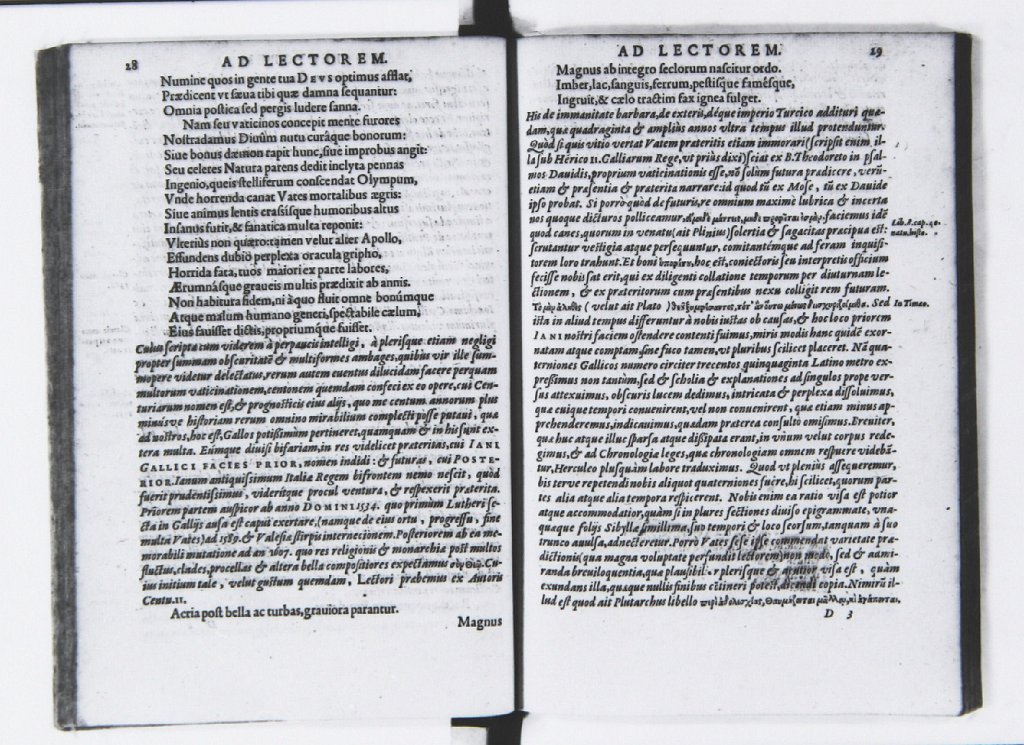 28 AD LECTOREM.
Numine quos in gente tua DEVS optimus afflat,
Prædicent vt sæua tibi quæ damna sequantur:
Omnia postica sed pergis ludere sanna.
Nam seu vaticinos concepit mente furores
Nostradamus Diuûm nutu curâque bonorum:
Siue bonus dæmon rapit hunc, siue improbus angit:
Seu celeres Natura parens dedit inclyta pennas
Ingenio, queis stelliferum conscendat Olympum,
Vnde horrenda canat Vates mortalibus ægris:
Siue animus lentis crassisque humoribus altus
Insanus furit, & fanatica multa reponit:
Vlterius non quæro: tamen velut alter Apollo,
Effundens dubio perplexa oracula gripho,
Horrida fata, tuos maiori ex parte labores,
Ærumnásque graueis multis prædixit ab annis.
Non habitura fidem, ni à quo fluit omne bonúmque
Atque malum humano generi, spectabile cælum,
Eius fauisset dictis, propriúmque fuisset.
Cuius scripta cum viderem à perpaucis intelligi, à plerisque etiam negligi
propter summam obscuritatē & multiformes ambages, quibus vir ille sum-
mopere videtur delectatus, rerum autem euentus dilucidam facere perquam
multorum vaticinationem, centonem quemdam confeci ex eo opere, cui Cen-
turiarum nomen est, & prognosticis eius alijs, quo me centum annorum plus
minus ve historiam rerum omnino mirabilium complecti posse putaui, quæ
ad nostros, hoc est, Gallos potißimùm pertineret, quamquam & in his sunt ex-
tera multa. Eúmque diuisi bifariam, in res videlicet præteritas, cui IANI
GALLICI FACIES PRIOR, nomen indidi: & futuras, cui POSTE-
RIOR. Ianum antiquissimum Italiæ Regem bifrontem nemo nescit, quòd
fuerit prudentissimus, viderítque procul ventura, & respexerit præterita.
Priorem partem auspicor ab anno DOMINI 1534. quo primùm Lutheri se-
cta in Gallijs ausa est caput exertare, (namque de eius ortu, progressu, fine
multa Vates) ad 1589. & Valesiæ stirpis internecionem. Posteriorem ab ea me-
morabili mutatione ad an 1607. quo res religionis & monarchiæ post multos
fluctus, clades, procellas & altera bella compositiores expectamus σὺν θεῷ. Cu-
ius initium tale, velut gustum quemdam, Lectori præbemus ex Autoris
Centu. 11.
Acria post bella ac turbas, grauiora parantur.
Magnus
AD LECTOREM. 29
Magnus ab integro seclorum nascitur ordo.
Imber, lac, sanguis, ferrum, pestisque famésque,
Ingruit, & cælo tractim fax ignea fulget.
His de immanitate barbara, de exteris, déque imperio Turcico additurí quæ-
dam, quæ quadraginta & ampliùs annos vltra tempus illud protenduntur.
Quòd si quis vitio vertat Vatem præteritis etiam immorari (scripsit enim il-
la sub Hérico 11. Galliarum Rege, vt priùs dixi) sciat ex B. Theodoreto in psal-
mos Dauidis, proprium vaticinationis esse, nō solùm futura prædicere, verū-
etiam & præsentia & præterita narrare: id quod tū ex Mose, tū ex Dauide
ipso probat. Si porrò quòd de futuris, re omnium maximè lubrica & incerta
nos quoque dicturos polliceamur, faciemus idē
quod canes, quorum in venatu (ait Plinius) solertia & sagacitas præcipua est:
scrutantur vestigia atque persequuntur, comitantémque ad feram inquisi-
torem loro trahunt. Et boni ὑποφήτου, hoc est, coniectoris seu interpretis officium
fecisse nobis sat erit, qui ex diligenti collatione temporum per diuturnam le-
ctionem, & ex præteritorum cum præsentibus nexu colligit rem futuram.
(velut ait Plato) Sed
ista in aliud tempus differuntur à nobis iustas ob causas, & hoc loco priorem
IANI nostri faciem ostendere contenti fuimus, miris modis hanc quidē exor-
natam atque comptam, sine fuco tamen, vt pluribus scilicet placeret. Nā qua-
terniones Gallicos numero circiter trecentos quinquaginta Latino metro ex-
pressimus non tantùm, sed & scholia & explanationes ad singulos propè ver-
sus attexuimus, obscuris lucem dedimus, intricata & perplexa dissoluimus,
quæ cuique tempori conuenirent, vel non conuenirent, quæ etiam minus ap-
prehenderemus, indicauimus, quædam præterea consultò omisimus. Breuiter,
quæ huc atque illuc sparsa atque dissipata erant, in vnum velut corpus rede-
gimus, & ad Chronologiæ leges, quæ chronologiam omnem respuere videbā-
tur, Herculeo plusquàm labore traduximus. Quod vt pleniùs assequeremur,
bis terve repetendi nobis aliquot quaterniones fuére, hi scilicet, quorum par-
tes alia atque alia tempora respicerent. Nobis enim ea ratio visa est potior
atque accommodatior, quàm si in plures sectiones diuiso epigrammate, vna-
quæque folijs Sibyllæ simillima, suo tempori & loco seorsum, tanquam à suo
trunco auulsa, adnecteretur. Porrò Vates sese ipse commendat varietate præ-
dictionis (quæ magna voluptate perfundit lectorem) non modò, sed & admi-
randa breuiloquentia, qua plausibilior plerisque & aptior visa est, quàm
exundans illa, quæque nullis finibus cōtineri potest, dicendi copia. Nimirū il-
lud est quod ait Plutarchus libello
D 3
Lib. 8. cap. 40.
natu. histo.
In Timæo.